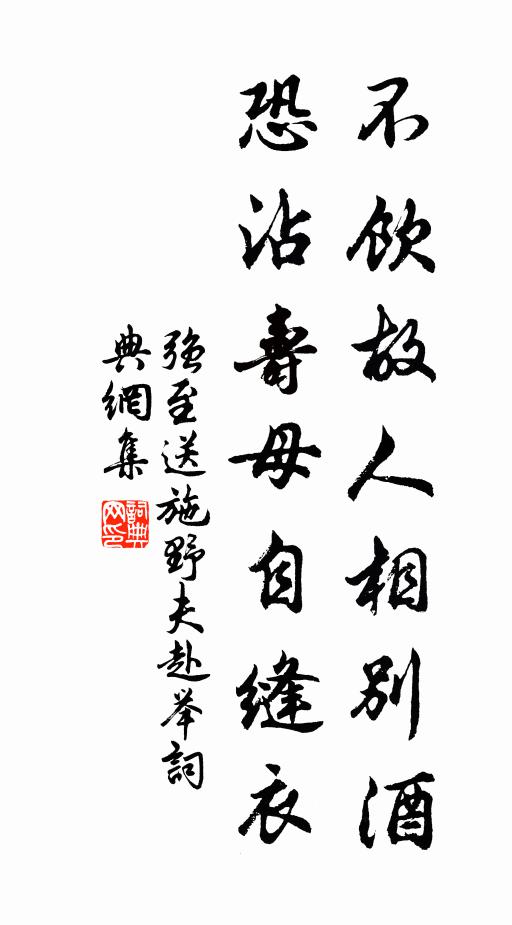 不飲故人相別酒
恐沾壽母自縫衣
强至送施野夫赴举詞
典網集
詞典网印